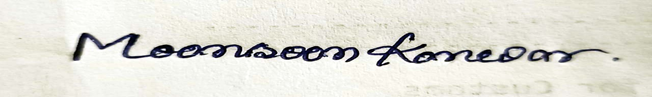 Moonsoon Konewar.